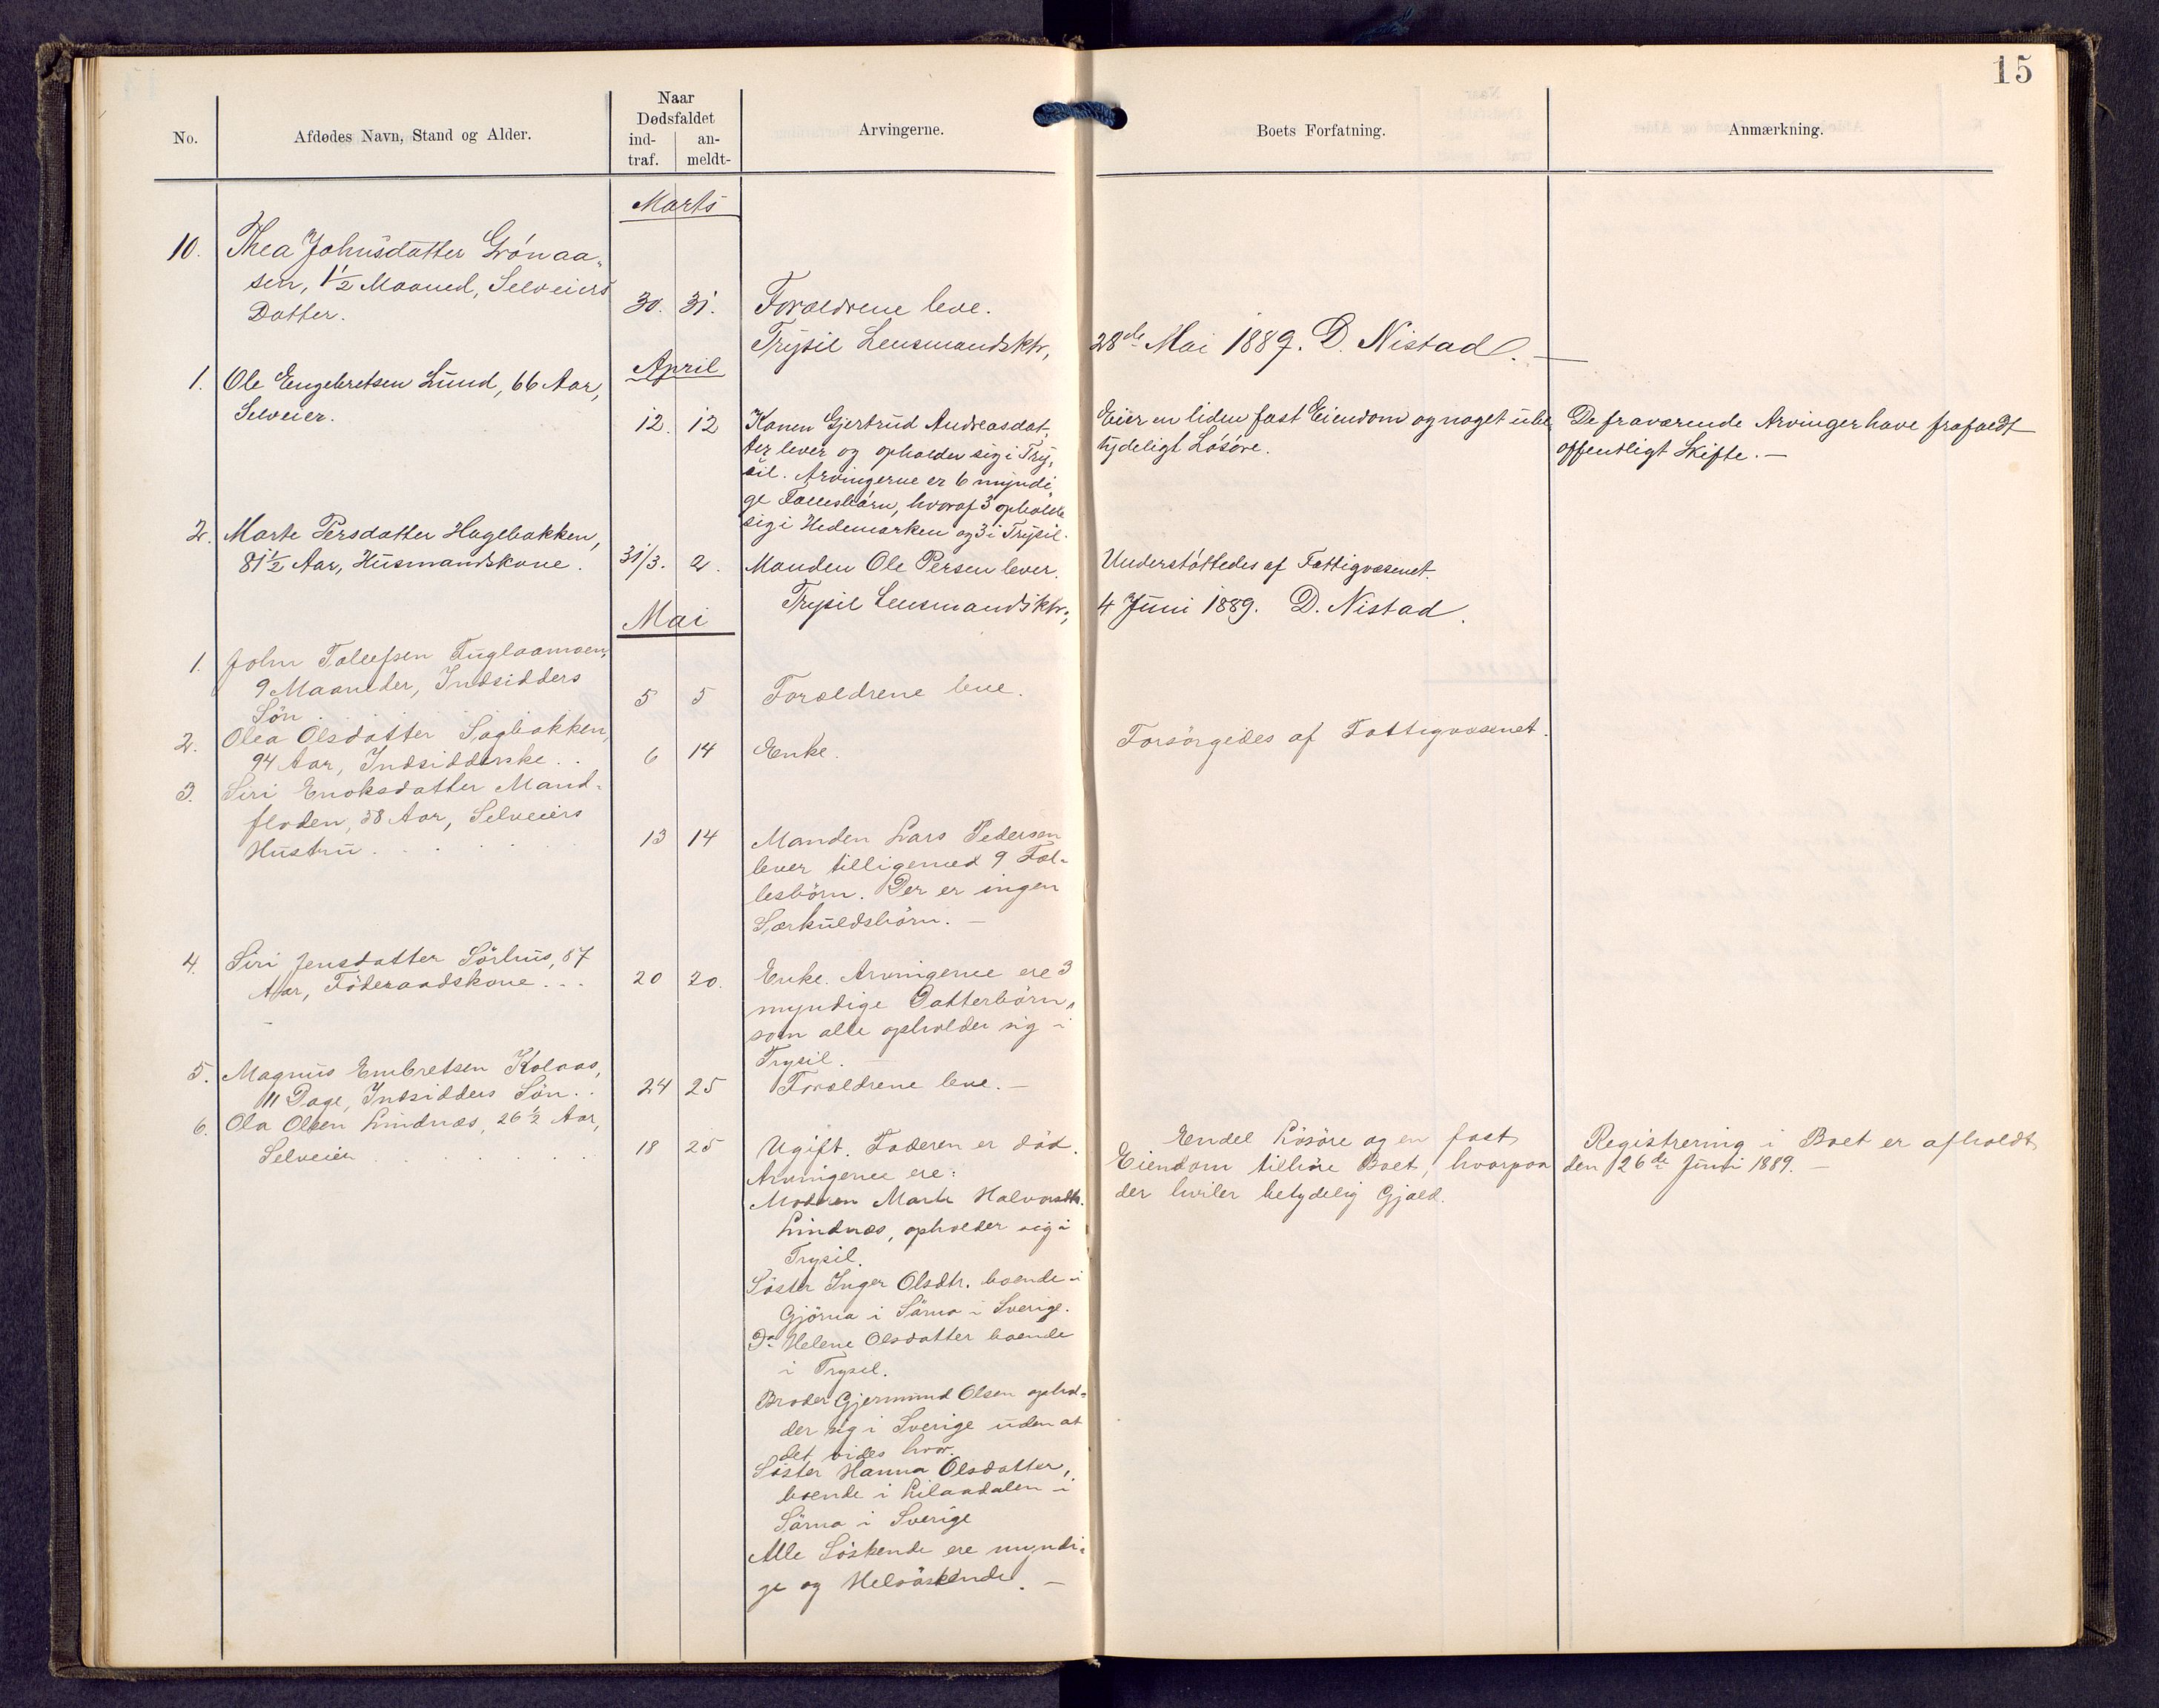 15
No.
Afdødes Navn, Stand og Alder.
Naar
Dødsfaldet
ind-
traf.
an-
meldt-
Arvingerne.
Boets Forfatning.
Anmærkning.
Marts
10. Thea Johnsdatter Grönaa-
sen, 1½ Maaned, Selveiers
Datter.
30. 31. Forældrene leve.
Trysil Lensmandsktr, 28de Mai 1889. D. Nistad. —
April
1. Ole Engebretsen Lund, 66 Aar,
Selveier.
12. 12 Konen Gjertrud Andreasdat-
ter lever og opholder sig i Try-
sil. Arvingerne er 6 myndi-
ge Fællesbørn, hvoraf 3 opholde
sig i Hedemarken og 3 i Trysil.
Eier en liden fast Eiendom og noget ube-
tydeligt Løsøre.
De fraværende Arvinger have frafaldt
offentligt Skifte. —
2. Marte Persdatter Hagebakken,
81½ Aar, Husmandskone.
31/3. 2. Manden Ole Persen lever.
Understøttedes af Fattigvæsenet.
Trysil Lensmandsktr, 4 Juni 1889. D. Nistad.
Mai
1. John Tollefsen Fuglaamoen,
9 Maaneder, Indsidders
Sön
5 5 Forældrene leve.
2. Olea Olsdatter Sagbakken,
94 Aar, Indsidderske . .
6 14 Enke.
Forsörgedes af Fattigvæsenet.
3. Siri Enoksdatter Mand-
floden, 38 Aar, Selveiers
Hustru . . . .
13 14 Manden Lars Pedersen
lever tilligemed 9 Fæl-
lesbörn. Der er ingen
Særkuldsbörn. —
4. Siri Jensdatter Sörhus, 87
Aar, Föderaadskone . . .
20 20. Enke. Arvingerne ere 3
myndige Datterbörn,
som alle opholder sig i
Trysil. —
5. Magnus Embretsen Kolaas,
11 Dage, Indsidders Sön . .
24 25 Forældrene leve. —
6. Ola Olsen Lindnæs, 26½ Aar,
Selveier . . . . .
18 25 Ugift. Faderen er död.
Arvingerne ere:
Moderen Marte Halvorsdtr.
Lindnæs, opholder sig i
Trysil.
Söster Inger Olsdtr. boende i
Gjörna i Särna i Sverige.
Do Helene Olsdatter boende
i Trysil.
Broder Gjermund Olsen ophol-
der sig i Sverige uden at
det vides hvor.
Söster Hanna Olsdatter,
boende i Lilaadalen i
Särna i Sverige
Alle Söskende ere myndi-
ge og Helsöskende. —
Endel Lösöre og en fast
Eiendom tilhöre Boet, hvorpaa
der hviler betydelig Gjæld.
Registrering i Boet er afholdt
den 26de Juni 1889. —